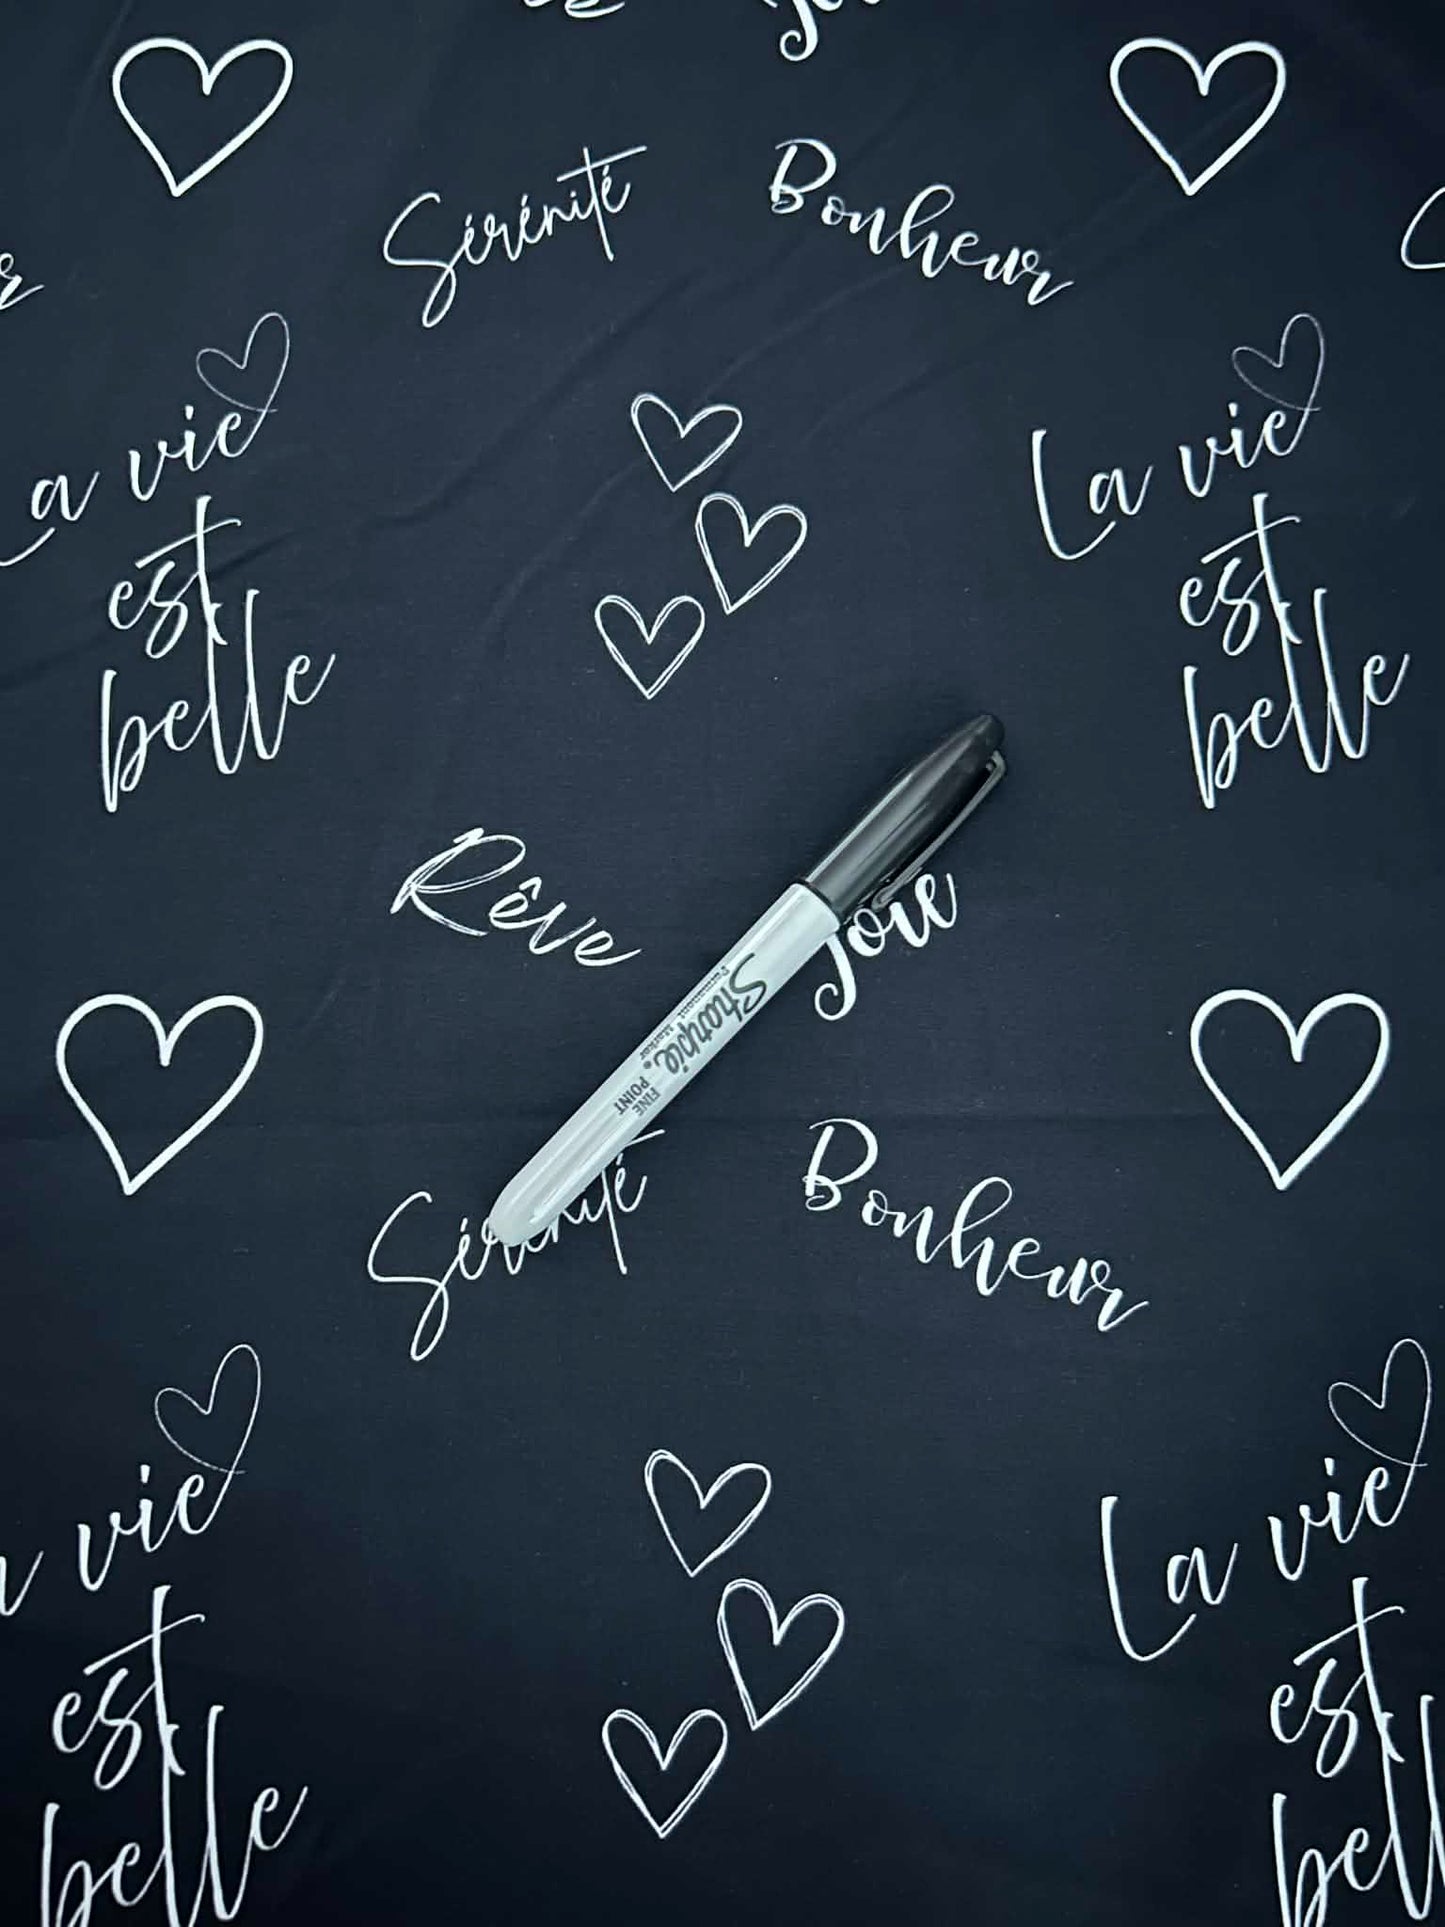 Sérénité
Bonheur
La vie
est
belle
La vie
est
belle
Rêve
Joie
Sharpie
Permanent Marker
FINE
POINT
Sérénité
Bonheur
vie
est
belle
La vie
est
bell